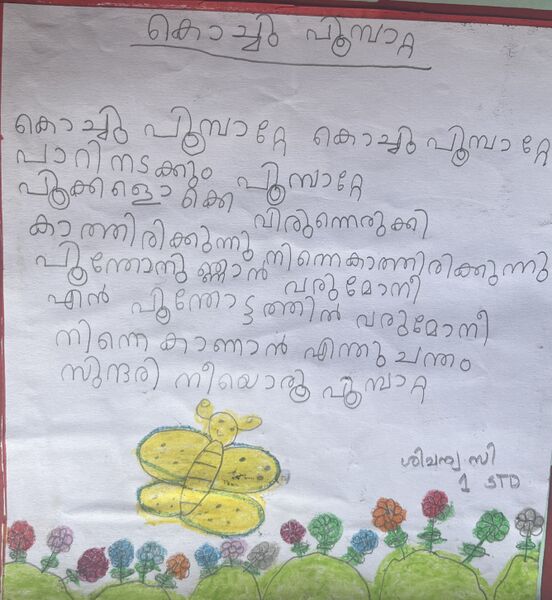 കൊച്ചു പൂമ്പാറ്റ
കൊച്ചു പൂമ്പാറ്റേ കൊച്ചു പൂമ്പാറ്റേ
പാറിനടക്കും പൂമ്പാറ്റേ
പൂക്കളൊക്കെ വിരുന്നൊരുക്കി
കാത്തിരിക്കുന്നു നിന്നെകാത്തിരിക്കുന്നു
വരുമോനീ
എൻ പൂന്തോട്ടത്തിൽ വരുമോനീ
നിന്നെ കാണാൻ എന്തു ചന്തം
സുന്ദരി നീയൊരു പൂമ്പാറ്റ
സി
1 STD